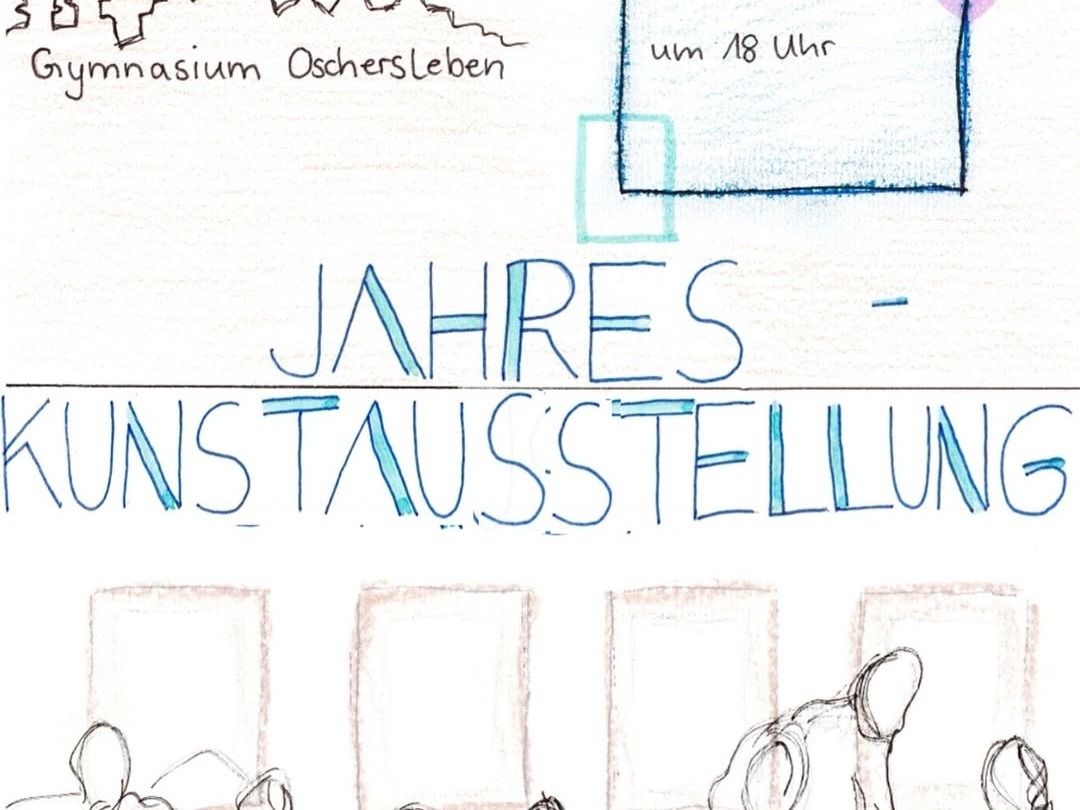 Gymnasium Oschersleben
um 18 Uhr
JAHRES -
KUNSTAUSSTELLUNG